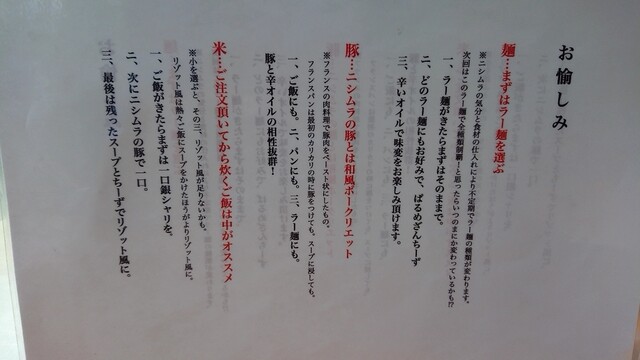 お愉しみ
麺…まずはラー麺を選ぶ
※ニシムラの気分と食材の仕入れにより不定期でラー麺の種類が変わります。
次回はこのラー麺で全種類制覇！と思ったらいつのまにか変わっているかも!?
一、ラー麺がきたらまずはそのままで。
二、どのラー麺にもお好みで、ぱるめざんちーず
三、辛いオイルで味変をお楽しみ頂けます。
豚…ニシムラの豚とは和風ポークリエット
※フランスの肉料理で豚肉をペースト状にしたもの。
フランスパンは最初のカリカリの時に豚をつけても、スープに浸しても。
一、ご飯にも。二、パンにも。三、ラー麺にも。
豚と辛オイルの相性抜群！
米…ご注文頂いてから炊くご飯は中がオススメ
※小を選ぶと、その三、リゾット風が足りないかも。
リゾット風は熱々ご飯にスープをかけたほうがよりリゾット風に。
一、ご飯がきたらまずは一口銀シャリを。
二、次にニシムラの豚で一口。
三、最後は残ったスープとちーずでリゾット風に。